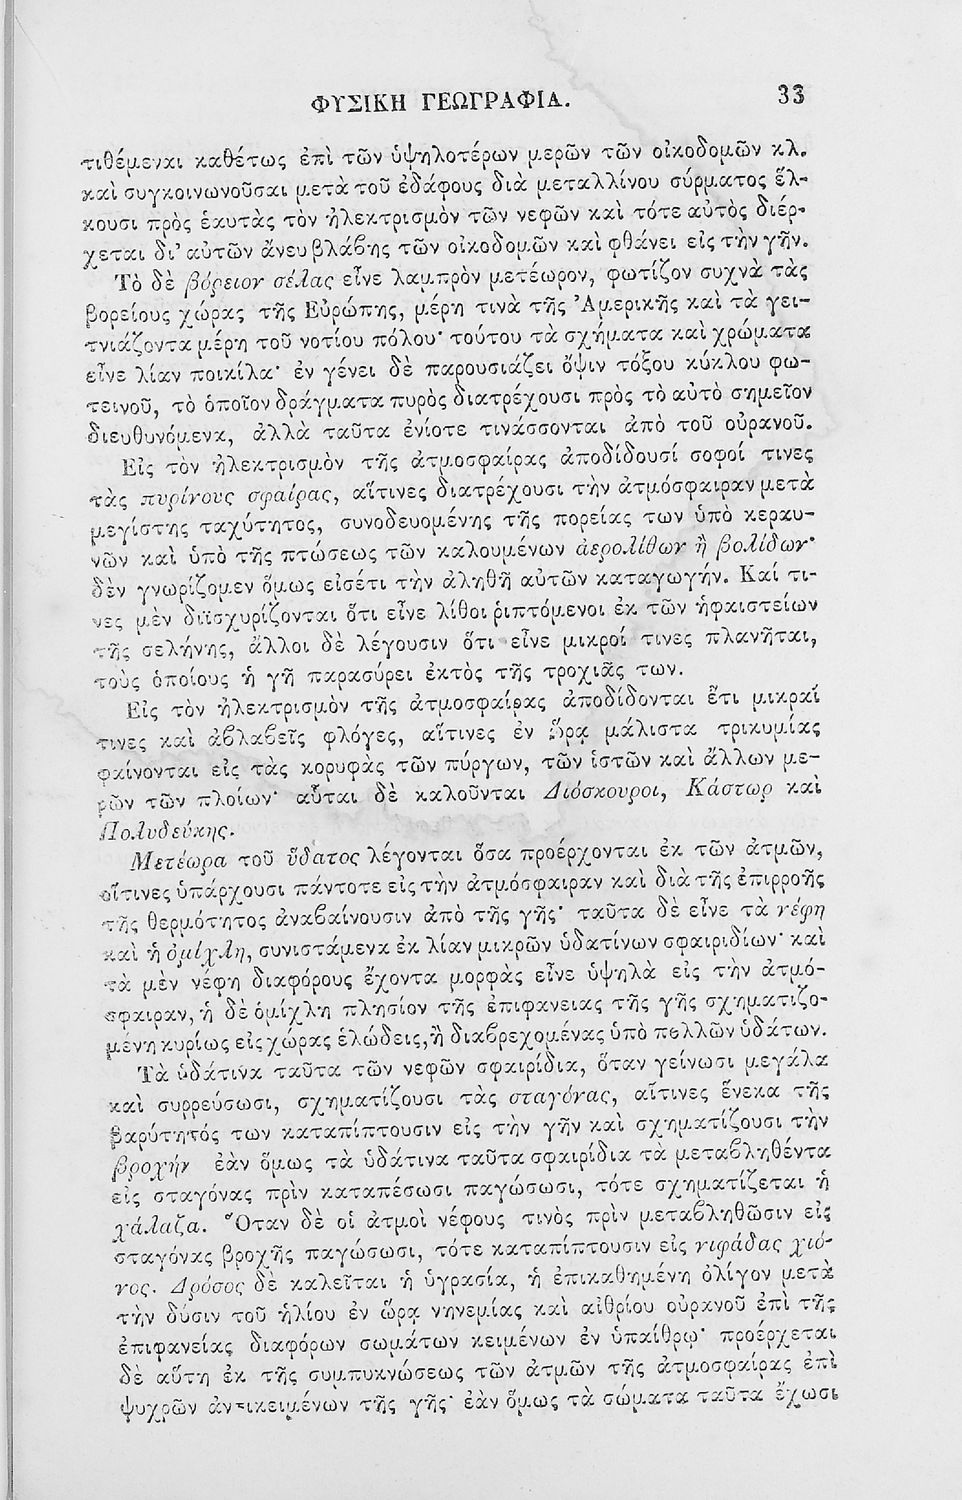 ΦΥΣΙΚΗ ΓΕΩΓΡΑΦΙΑ. 33
τιθέμεναι καθέτως ἐπὶ τῶν ὑψηλοτέρων μερῶν τῶν οἰκοδομῶν κλ.
καὶ συγκοινωνοῦσαι μετὰ τοῦ ἐδάφους διὰ μεταλλίνου σύρματος ἕλ-
κουσι πρὸς ἑαυτὰς τὸν ἠλεκτρισμὸν τῶν νεφῶν καὶ τότε αὐτὸς διέρ-
χεται δι' αὐτῶν ἄνευ βλάβης τῶν οἰκοδομῶν καὶ φθάνει εἰς τὴν γῆν.
Τὸ δὲ βόρειον σέλας εἶνε λαμπρὸν μετέωρον, φωτίζον συχνὰ τὰς
βορείους χώρας τῆς Εὐρώπης, μέρη τινὰ τῆς Ἀμερικῆς καὶ τὰ γει-
τνιάζοντα μέρη τοῦ νοτίου πόλου· τούτου τὰ σχήματα καὶ χρώματα
εἶνε λίαν ποικίλα· ἐν γένει δὲ παρουσιάζει ὄψιν τόξου κύκλου φω-
τεινοῦ, τὸ ὁποῖον δράγματα πυρὸς διατρέχουσι πρὸς τὸ αὐτὸ σημεῖον
διευθυνόμενα, ἀλλὰ ταῦτα ἐνίοτε τινάσσονται ἀπὸ τοῦ οὐρανοῦ.
Εἰς τὸν ἠλεκτρισμὸν τῆς ἀτμοσφαίρας ἀποδίδουσί σοφοί τινες
τὰς πυρίνους σφαίρας, αἵτινες διατρέχουσι τὴν ἀτμόσφαιραν μετὰ
μεγίστης ταχύτητος, συνοδευομένης τῆς πορείας των ὑπὸ κεραυ-
νῶν καὶ ὑπὸ τῆς πτώσεως τῶν καλουμένων ἀερολίθων ἢ βολίδων·
δὲν γνωρίζομεν ὅμως εἰσέτι τὴν ἀληθῆ αὐτῶν καταγωγήν. Καί τι-
νες μὲν διϊσχυρίζονται ὅτι εἶνε λίθοι ῥιπτόμενοι ἐκ τῶν ἡφαιστείων
τῆς σελήνης, ἄλλοι δὲ λέγουσιν ὅτι εἶνε μικροί τινες πλανῆται,
τοὺς ὁποίους ἡ γῆ παρασύρει ἐκτὸς τῆς τροχιᾶς των.
Εἰς τὸν ἠλεκτρισμὸν τῆς ἀτμοσφαίρας ἀποδίδονται ἔτι μικραί
τινες καὶ ἀβλαβεῖς φλόγες, αἵτινες ἐν ὥρᾳ μάλιστα τρικυμίας
φαίνονται εἰς τὰς κορυφὰς τῶν πύργων, τῶν ἱστῶν καὶ ἄλλων με-
ρῶν τῶν πλοίων· αὗται δὲ καλοῦνται Διόσκουροι, Κάστωρ καὶ
Πολυδεύκης.
Μετέωρα τοῦ ὕδατος λέγονται ὅσα προέρχονται ἐκ τῶν ἀτμῶν,
οἵτινες ὑπάρχουσι πάντοτε εἰς τὴν ἀτμόσφαιραν καὶ διὰ τῆς ἐπιρροῆς
τῆς θερμότητος ἀναβαίνουσιν ἀπὸ τῆς γῆς· ταῦτα δὲ εἶνε τὰ νέφη
καὶ ἡ ὁμίχλη, συνιστάμενα ἐκ λίαν μικρῶν ὑδατίνων σφαιριδίων· καὶ
τὰ μὲν νέφη διαφόρους ἔχοντα μορφὰς εἶνε ὑψηλὰ εἰς τὴν ἀτμό-
σφαιραν, ἡ δὲ ὁμίχλη πλησίον τῆς ἐπιφανειας τῆς γῆς σχηματιζο-
μένη κυρίως εἰς χώρας ἑλώδεις, ἢ διαβρεχομένας ὑπὸ πολλῶν ὑδάτων.
Τὰ ὑδάτινα ταῦτα τῶν νεφῶν σφαιρίδια, ὅταν γείνωσι μεγάλα
καὶ συρρεύσωσι, σχηματίζουσι τὰς σταγόνας, αἵτινες ἕνεκα τῆς
βαρύτητός των καταπίπτουσιν εἰς τὴν γῆν καὶ σχηματίζουσι τὴν
βροχήν ἐὰν ὅμως τὰ ὑδάτινα ταῦτα σφαιρίδια τὰ μεταβληθέντα
εἰς σταγόνας πρὶν καταπέσωσι παγώσωσι, τότε σχηματίζεται ἡ
χάλαζα. Ὅταν δὲ οἱ ἀτμοὶ νέφους τινὸς πρὶν μεταβληθῶσιν εἰς
σταγόνας βροχῆς παγώσωσι, τότε καταπίπτουσιν εἰς νιφάδας χιό-
νος. Δρόσος δὲ καλεῖται ἡ ὑγρασία, ἡ ἐπικαθημένη ὀλίγον μετὰ
τὴν δύσιν τοῦ ἡλίου ἐν ὥρᾳ νηνεμίας καὶ αἰθρίου οὐρανοῦ ἐπὶ τῆς
ἐπιφανείας διαφόρων σωμάτων κειμένων ἐν ὑπαίθρῳ· προέρχεται
δὲ αὕτη ἐκ τῆς συμπυκνώσεως τῶν ἀτμῶν τῆς ἀτμοσφαίρας ἐπὶ
ψυχρῶν ἀντικειμένων τῆς γῆς· ἐὰν ὅμως τὰ σώματα ταῦτα ἔχωσι